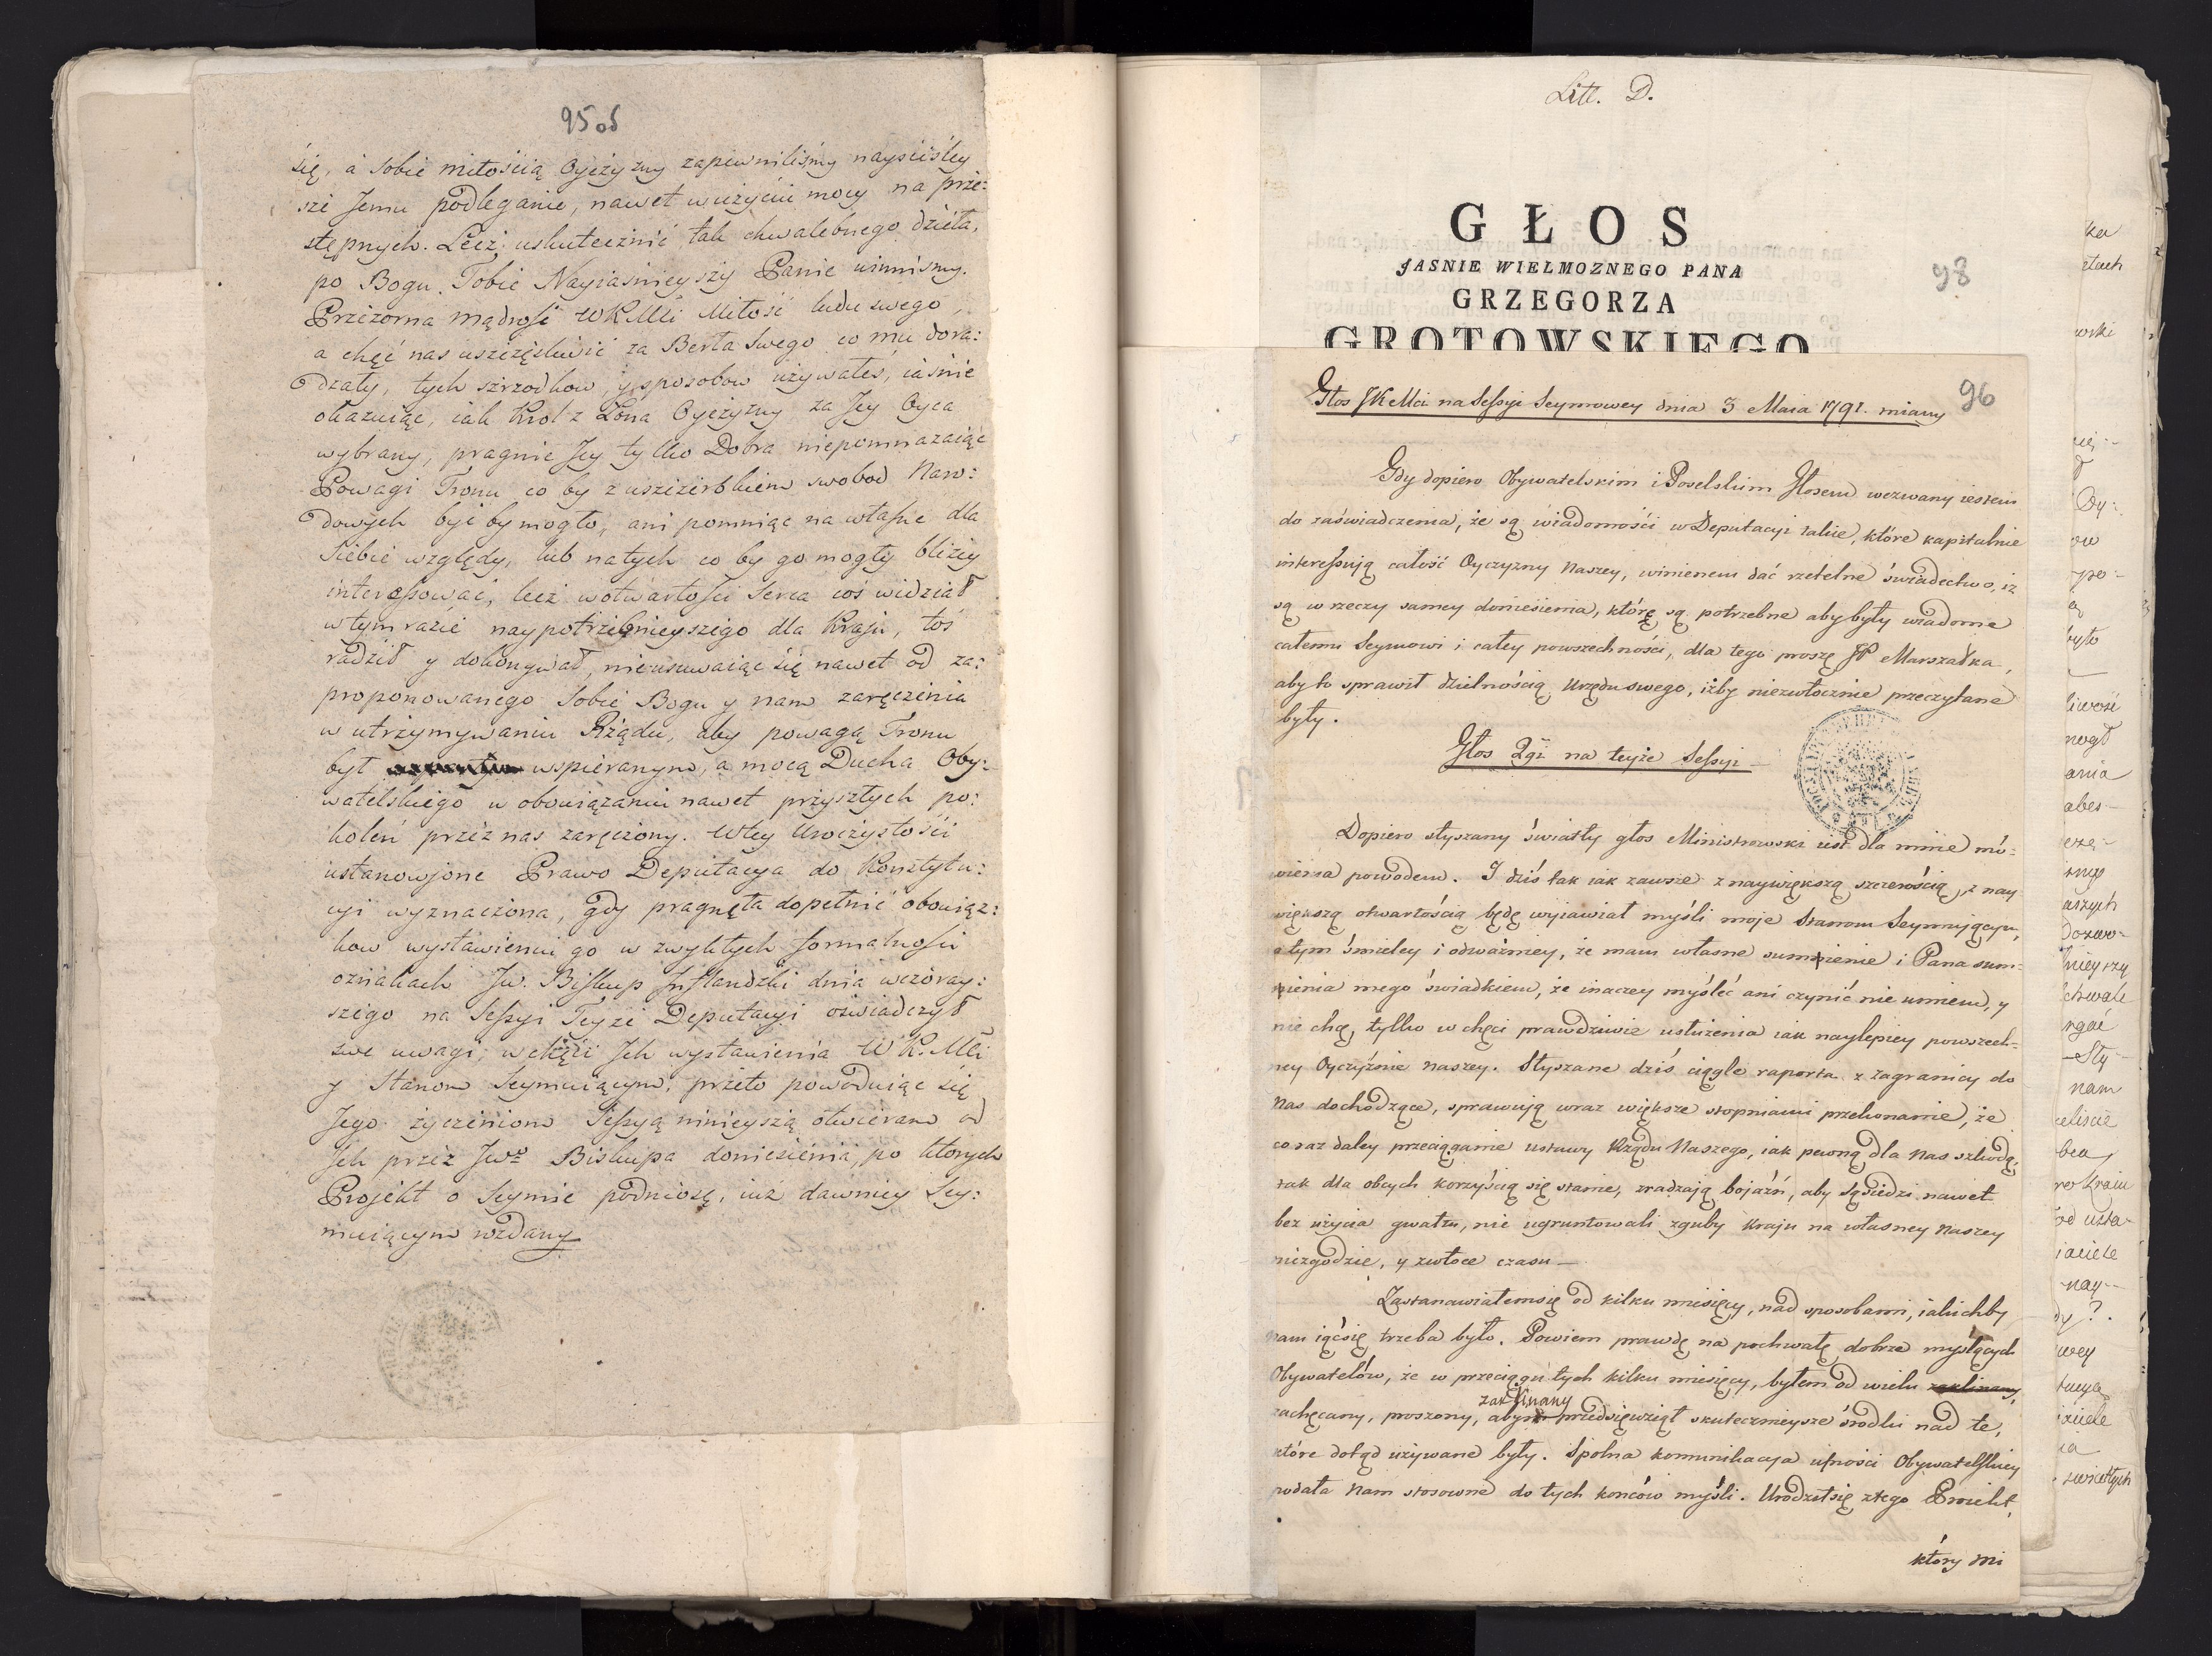 95 od
się, a sobie miłością Oyczyzny zapewniliśmy nayściśley
sze Jemu podleganie, nawet w użyciu mocy na prze:
stępnych. Lecz uskutecznić tak chwalebnego dzieła,
po Bogu Tobie Nayiaśnieyszy Panie winniśmy.
Przezorna mądrość WKMci Miłość ludu swego,
a chęć nas uszczęśliwić za Berła Swego co mu dora:
dzały, tych szrzodkow, y sposobow używałeś, iaśnie
okazuiąc, iak Krol z Łona Oyczyzny za Jey Oyca
wybrany, pragnie Jey tylko Dobra niepomnazaiąc
Powagi Tronu co by z uszczerbkiem swobod Naro:
dowych być by mogło, ani pomniąc na własne dla
Siebie względy, lub na tych co by go mogły bliżey
interessować, lecz w otwartości Serca coś widział
w tym razie naypotrzebnieyszego dla Kraju, toś
radził y dokonywał, nieusuwaiąc się nawet od za:
proponowanego Sobie Bogu y nam zaręczenia
w utrzymywaniu Rządu, aby powagą Tronu
był wspieranym, a mocą Ducha Oby:
watelskiego w obowiązaniu nawet przyszłych po:
koleń przez nas zaręczony. W tey Uroczystości
ustanowione Prawo Deputacya do Konstytu:
cyi wyznaczona, gdy pragnęła dopełnić obowiąz:
kow wystawieniu go w zwykłych formalności
oznakach Jw. Biskup Inflandzki dnia wczoray:
szego na Sessyi Teyże Deputacyi oświadczył
swe uwagi, w chęci Ich wystawienia W K. Mci
y Stanom Seymuiącym, przeto powoduiąc się
Jego życzeniom Sessyą ninieyszą otwieram od
Ich przez Jwo Biskupa doniesienia, po ktorych
Projekt o Seymie podniosę, iuż dawniey Sey:
muiącym rozdany
Litt. D.
GŁOS
JASNIE WIELMOZNEGO PANA
98
GRZEGORZA
GROTOWSKIEGO
Głos JKMci na Sessyi Seymowey dnia 3 Maia 1791. miany
96
Gdy dopiero Obywatelskim i Poselskim Głosem wezwany iestem
do zaświadczenia, że są wiadomości w Deputacyi takie, które kapitalnie
interessują całość Oyczyzny Naszey, winienem dać rzetelne świadectwo, iż
są w rzeczy samey doniesienia, które są potrzebne aby były wiadome
całemu Seymowi i całey powszechności, dla tego proszę JP Marszałka,
aby to sprawił dzielnością Urzędu swego, iżby niezwłocznie przeczytane
były.
Głos 2gi na teyże Sessyi
Dopiero słyszany światły głos Ministrowski iest dla mnie mó:
wienia powodem. I dziś tak iak zawsze z naywiększą szczerością, z nay
większą otwartością będę wyiawiał myśli moje Stanom Seymuiącym,
o tym śmieley i odważniey, że mam własne sumnienie i Pana sum:
nienia mego świadkiem, że inaczey myśleć ani czynić nie umiem, y
nie chcę, tylko w chęci prawdziwie usłużenia iak naylepiey powszech:
ney Oyczyźnie Naszey. Słyszane dziś ciągle raporta z zagranicy do
Nas dochodzące, sprawują wraz większe stopniami przekonanie, że
coraz daley przeciąganie ustawy Rządu Naszego, iak pewną dla Nas szkodą,
tak dla obcych korzyścią się stanie, zradzają bojaźń, aby Sąsiedzi nawet
bez użycia gwałtu, nie ugruntowali zguby Kraju na własney Naszey
niezgodzie, y zwłoce czasu —
Zastanawiałem się od kilku miesięcy, nad sposobami, iakichby
nam iąć się trzeba było. Powiem prawdę na pochwałę dobrze myślących
Obywatelów, że w przeciągu tych kilku miesięcy, byłem od wielu zaklinany,
zaklinany
zachęcany, proszony, abym przedsięwziął skutecznieysze środki nad te,
które dotąd używane były. Spolna kommunikacya ufności Obywatelskiey
podała Nam stosowne do tych końców myśli. Urodził się z tego Proiekt,
który mi
ka
etach
wski
Oy:
ow
ypo:
było
liwość
mogł
ania
abes-
aszych
Dozwo-
nieyszy
chwale
Sły
nam
celiście
Kraiu
usta-
iaciele
nay-
dy?
wey
tucya
świetłych